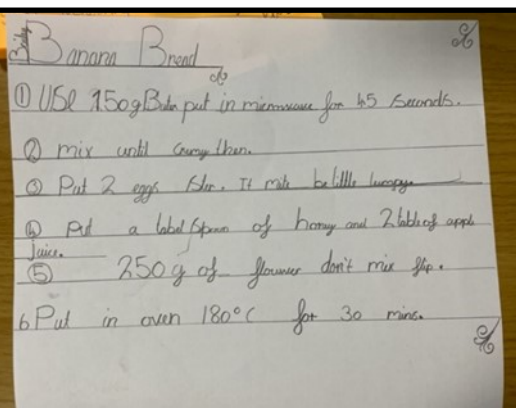 Banana Bread
① USE 150g Butter put in microwave for 45 seconds.
② mix until creamy then.
③ Put 2 eggs stir. It mite be little lumpy
④ Put a label spoon of honey and 2 table of apple
juice.
⑤ 250g of flower don't mix flip.
6 Put in oven 180°C for 30 mins.